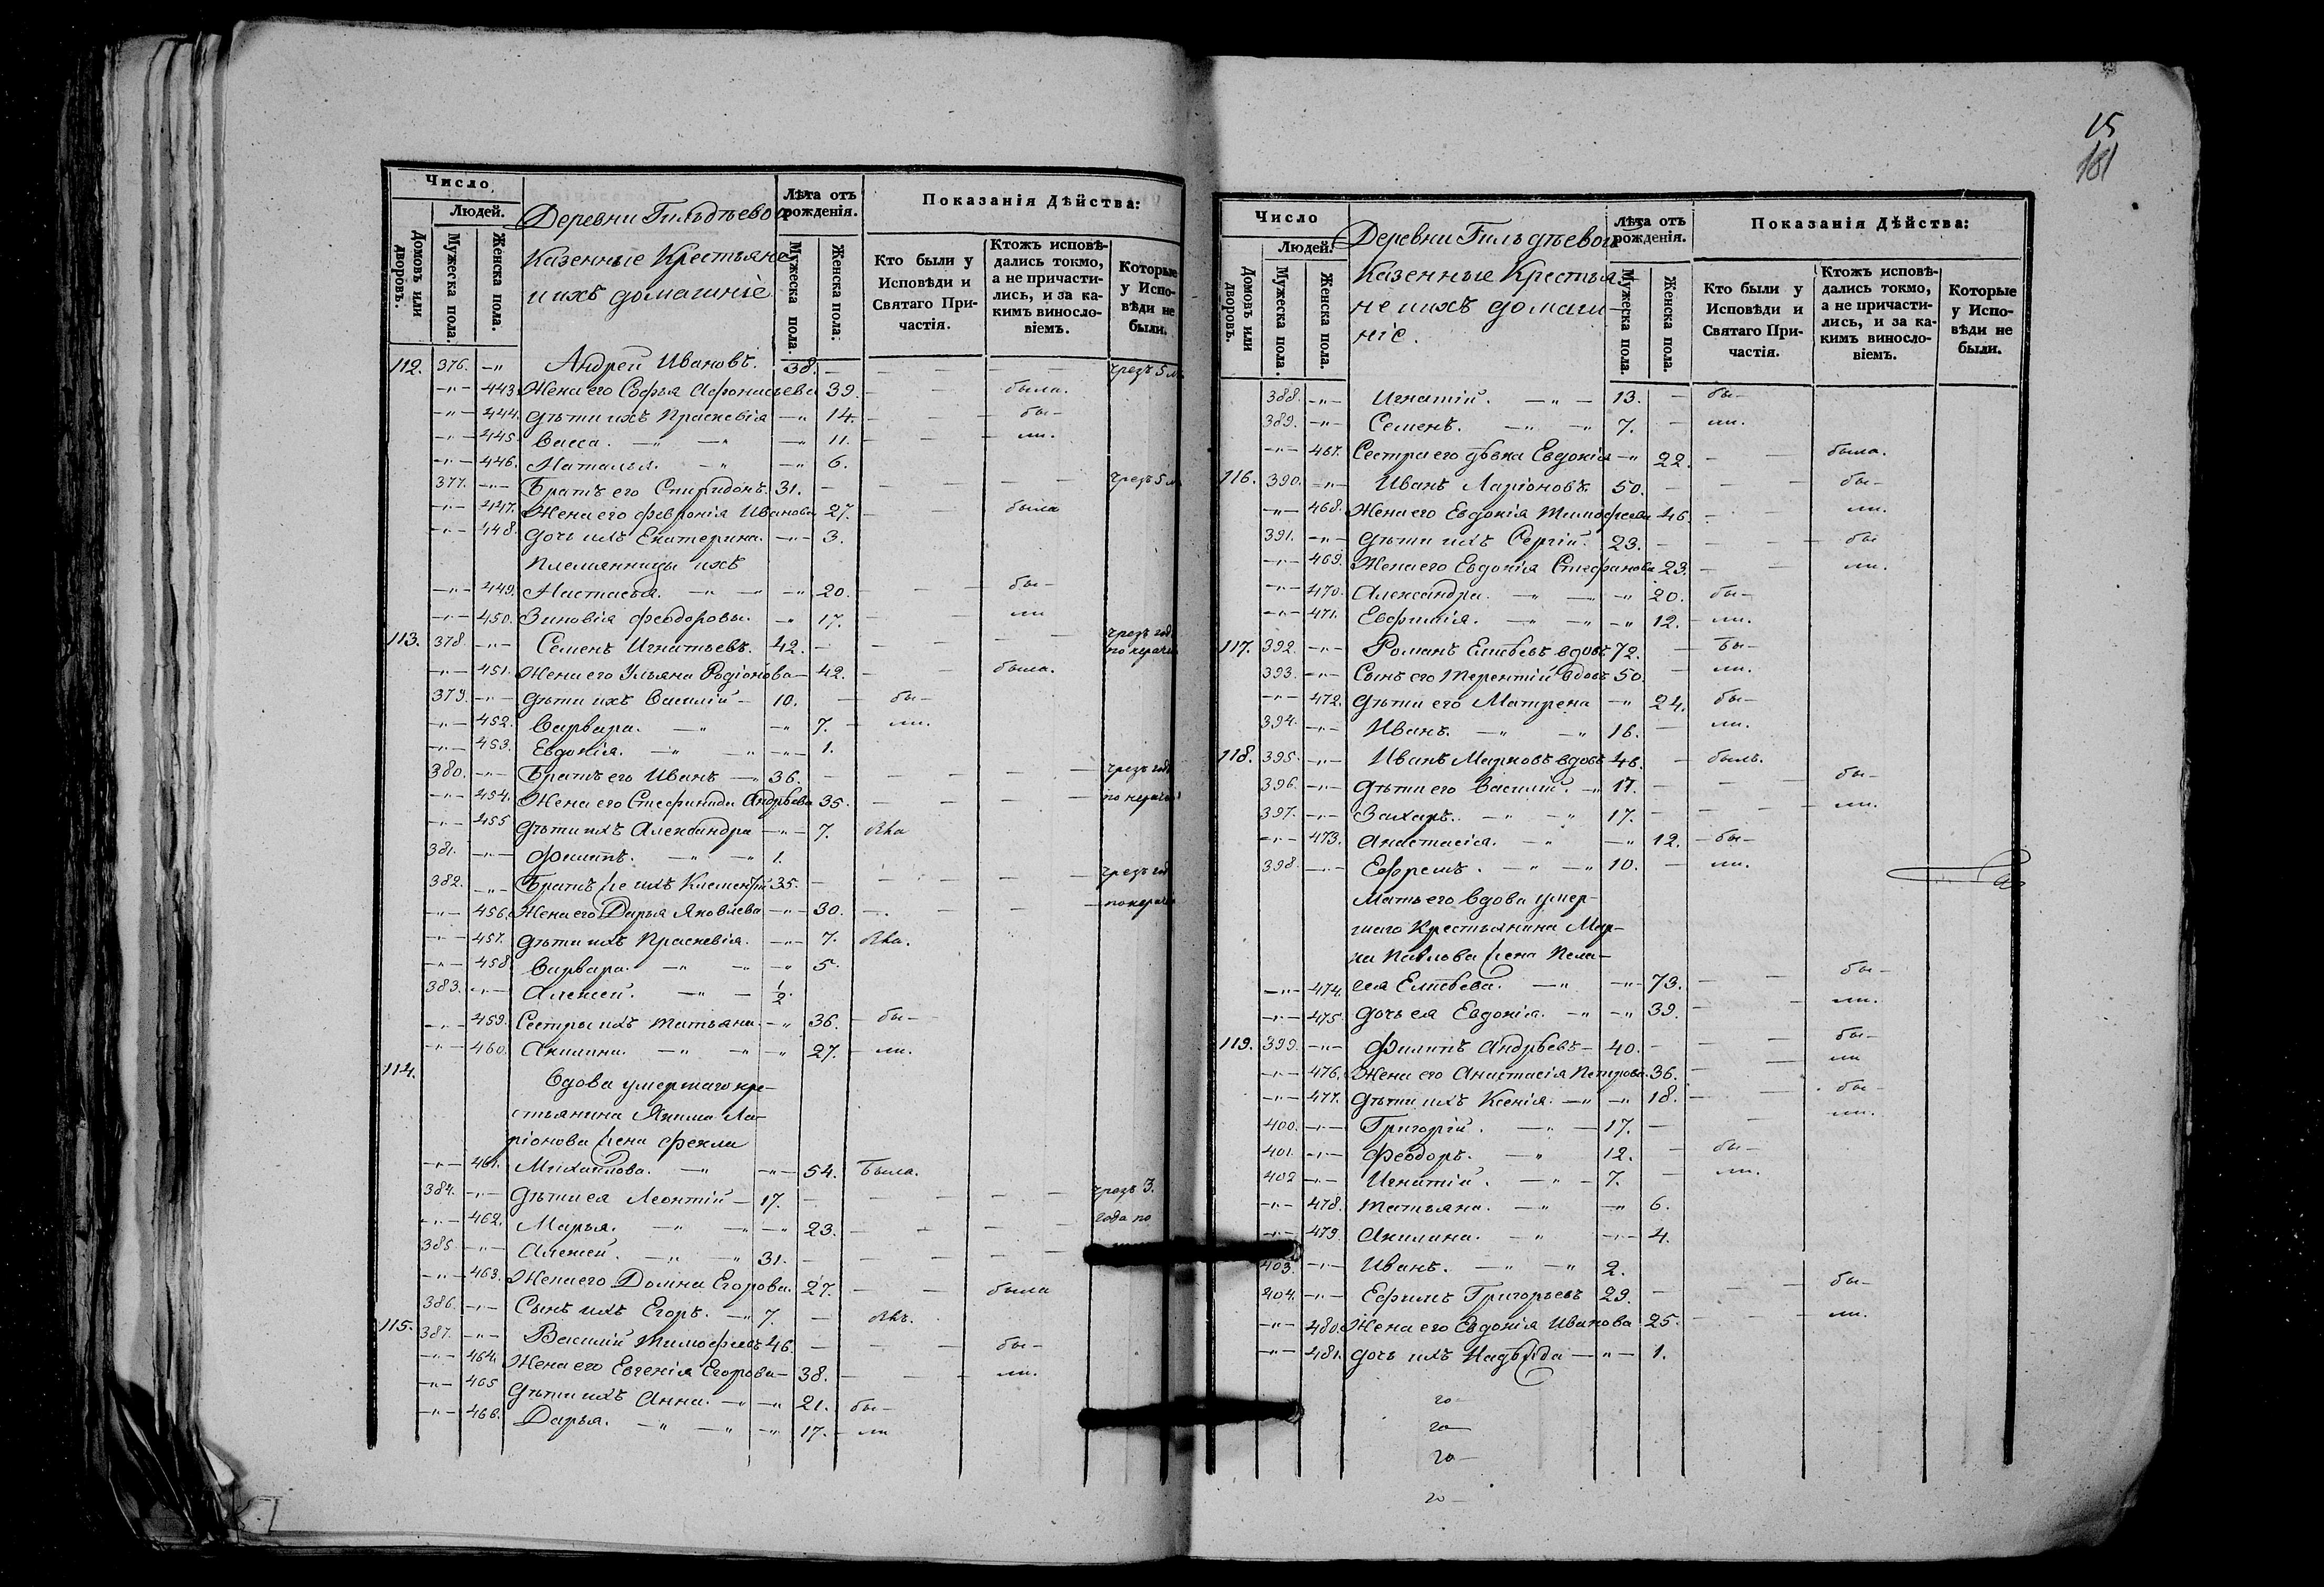 15
181
Число
Людей.
Домовъ или дворовъ.
Мужеска пола.
Женска пола.
Деревни Гильдѣевой
Казенные Крестьяне
и ихъ домашніе
Лѣта отъ рожденія.
Мужеска пола.
Женска пола.
Показанія Дѣйства:
Кто были у Исповѣди и Святаго Причастія.
Ктожъ исповѣдались токмо, а не причастились, и за какимъ винословіемъ.
Которые у Исповѣди не были.
112. 376. —„ Андрей Ивановъ. 38. — — — — — чрезъ 5 л.
—„— 443. Жена его Софья Афонасьева 39. — — была.
—„— 444. Дѣти ихъ Праскевія —„ 14. — — бы—
—„— 445. Васса. —„ —„ —„ 11. — — ли.
—„— 446. Наталья. —„ —„ 6.
377. —„— Братъ его Спиридонъ. 31. — — — — — чрезъ 5 л.
—„— 447. Жена его Февронія Иванова 27. — — была
—„— 448. Дочь ихъ Екатерина. —„— 3.
Племянницы ихъ
—„— 449. Настасья. —„ —„ —„ 20. — — бы—
—„— 450. Зиновія Феодоровы. —„ 17. — — ли
113. 378. —„— Семенъ Игнатьевъ. 42. — — — — чрезъ год.
—„— 451. Жена его Ульяна Родіонова — 42. — — была.
379. —„— Дѣти ихъ Василій — 10. — бы—
—„— 452. Варвара. —„ —„ 7. — ли.
—„— 453. Евдокія. —„ —„ —„— 1.
380. —„— Братъ его Иванъ —„ 36. — — — — — чрезъ год.
—„— 454. Жена его Стефанида Андрѣева 35. — — — —
—„— 455 Дѣти ихъ Александра —„— 7.
381. —„— Филиппъ. —„ —„ 1.
382. —„— Братъ же ихъ Климентій 35. — — — — — чрезъ год
—„— 456. Жена его Дарья Яковлева —„— 30. — — — —
—„— 457. Дѣти ихъ Праскевія. —„— 7.
—„— 458 Варвара. —„ —„ —„ 5.
383. —„— Алексей. —„ — 1/2.
—„— 459. Сестры ихъ Татьяна. —„ 36. — бы—
—„— 460. Акилина. —„ —„ —„ 27. — ли.
114. Вдова умершаго кре-
стьянина Якима Ла-
ріонова жена Фекла
—„— 461. Михайлова. —„ —„— 54. Была.
384. —„— Дѣти ея Леонтій — 17. — — — — — чрезъ 3.
—„— 462. Марья. —„ —„ —„ 23. — — — — года по
385. —„— Алексей. —„ —„ 31. — — — —
—„— 463. Жена его Домна Егорова. 27. — — была
386. —„— Сынъ ихъ Егоръ. —„ 7. —
115. 387. —„— Василій Тимофеевъ 46. — — — бы—
—„— 464. Жена его Евгенія Егорова — 38. — — — ли.
—„— 465 Дѣти ихъ Анна. —„ —„ 21. бы—
—„— 466. Дарья. —„ —„ —„ 17. — ли
Число
Людей.
Домовъ или дворовъ.
Мужеска пола.
Женска пола.
Деревни Гильдѣевой
Казенные Крестья-
не и ихъ домаш-
ніе.
Лѣта отъ рожденія.
Мужеска пола.
Женска пола.
Показанія Дѣйства:
Кто были у Исповѣди и Святаго Причастія.
Ктожъ исповѣдались токмо, а не причастились, и за какимъ винословіемъ.
Которые у Исповѣди не были.
388. —„— Игнатій. —„ — 13. — бы—
389. —„— Семенъ. —„ —„ 7. — ли.
—„— 467. Сестра его дѣвка Евдокія —„ 22. — — была.
116. 390. —„— Иванъ Ларіоновъ. 50. — — — бы—
—„— 468. Жена его Евдокія Тимофеева 46. — ли.
391. —„— Дѣти ихъ Сергій. 23. — — — бы
—„— 469. Жена его Евдокія Стефанова 23. — — ли.
—„— 470. Александра. —„ —„ —„ 20. бы—
—„— 471. Евфимія. —„ —„ —„ 12. — ли.
117. 392. —„— Романъ Елисѣевъ вдовъ 72. — Бы—
393. —„— Сынъ его Терентій вдовъ 50. — ли.
—„— 472. Дѣти его Матрена —„ 24. бы—
394. —„— Иванъ. —„ —„ 16. — ли.
118. 395. —„— Иванъ Марковъ вдовъ 46. — былъ.
396. —„— Дѣти его Василій. —„ 17. — — бы—
397. —„— Захаръ. —„ —„ 17. — — — ли.
—„— 473. Анастасія. —„ —„ 12. — бы—
398. —„— Ефремъ. —„ —„ 10. — ли.
Мать его вдова умер-
шаго Крестьянина Мар-
ка Павлова жена Пела-
—„— 474. гея Елисѣева. —„ —„ 73. — — бы—
—„— 475. Дочь ея Евдокія. —„ —„ 39. — — ли.
119. 399. —„— Филипъ Андрѣевъ — 40. — — бы—
—„— 476. Жена его Анастасія Петрова. 36. — — ли
—„— 477. Дѣти ихъ Ксенія. —„ —„ 18. — — бы—
400. —„— Григорій. —„— 17. — — ли.
401. —„— Феодоръ. —„ 12. — бы—
402 —„— Игнатій. —„ — 7. — ли.
—„— 478. Татьяна. —„ —„ 6.
—„— 479. Акилина. —„ —„— 4.
403. —„— Иванъ. —„ —„ 2.
404. —„— Ефимъ Григорьевъ 29. — — — бы—
—„— 480. Жена его Евдокія Иванова 25. — — — ли.
—„— 481. Дочь ихъ Надѣжда —„— 1.